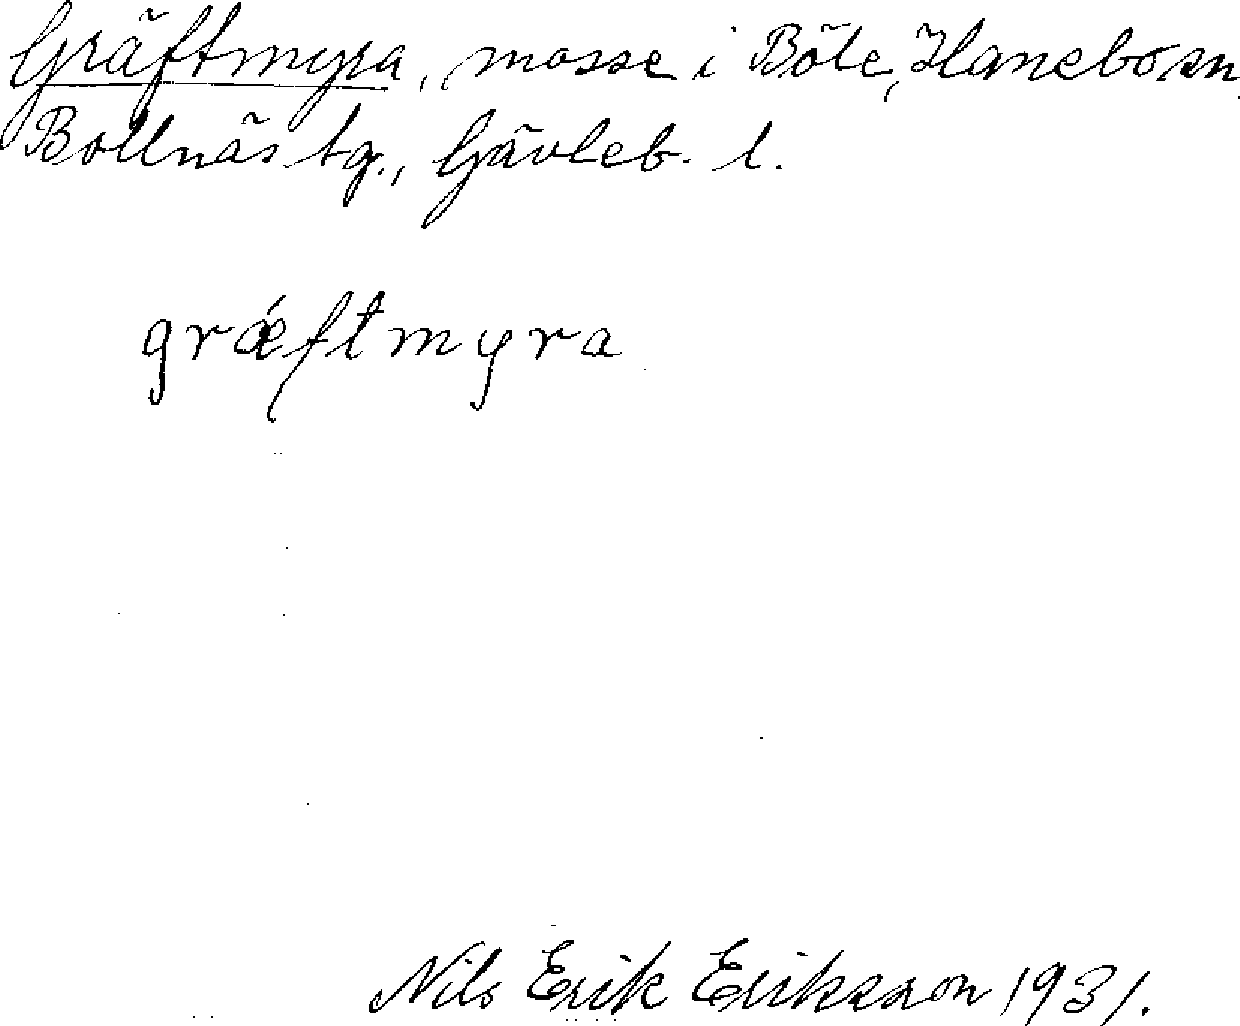 Gräftmyra, mosse i Böle, Hanebo sn
Bollnäs tg., Gävleb. l.
grǽftmyra
Nils Erik Eriksson 1931.